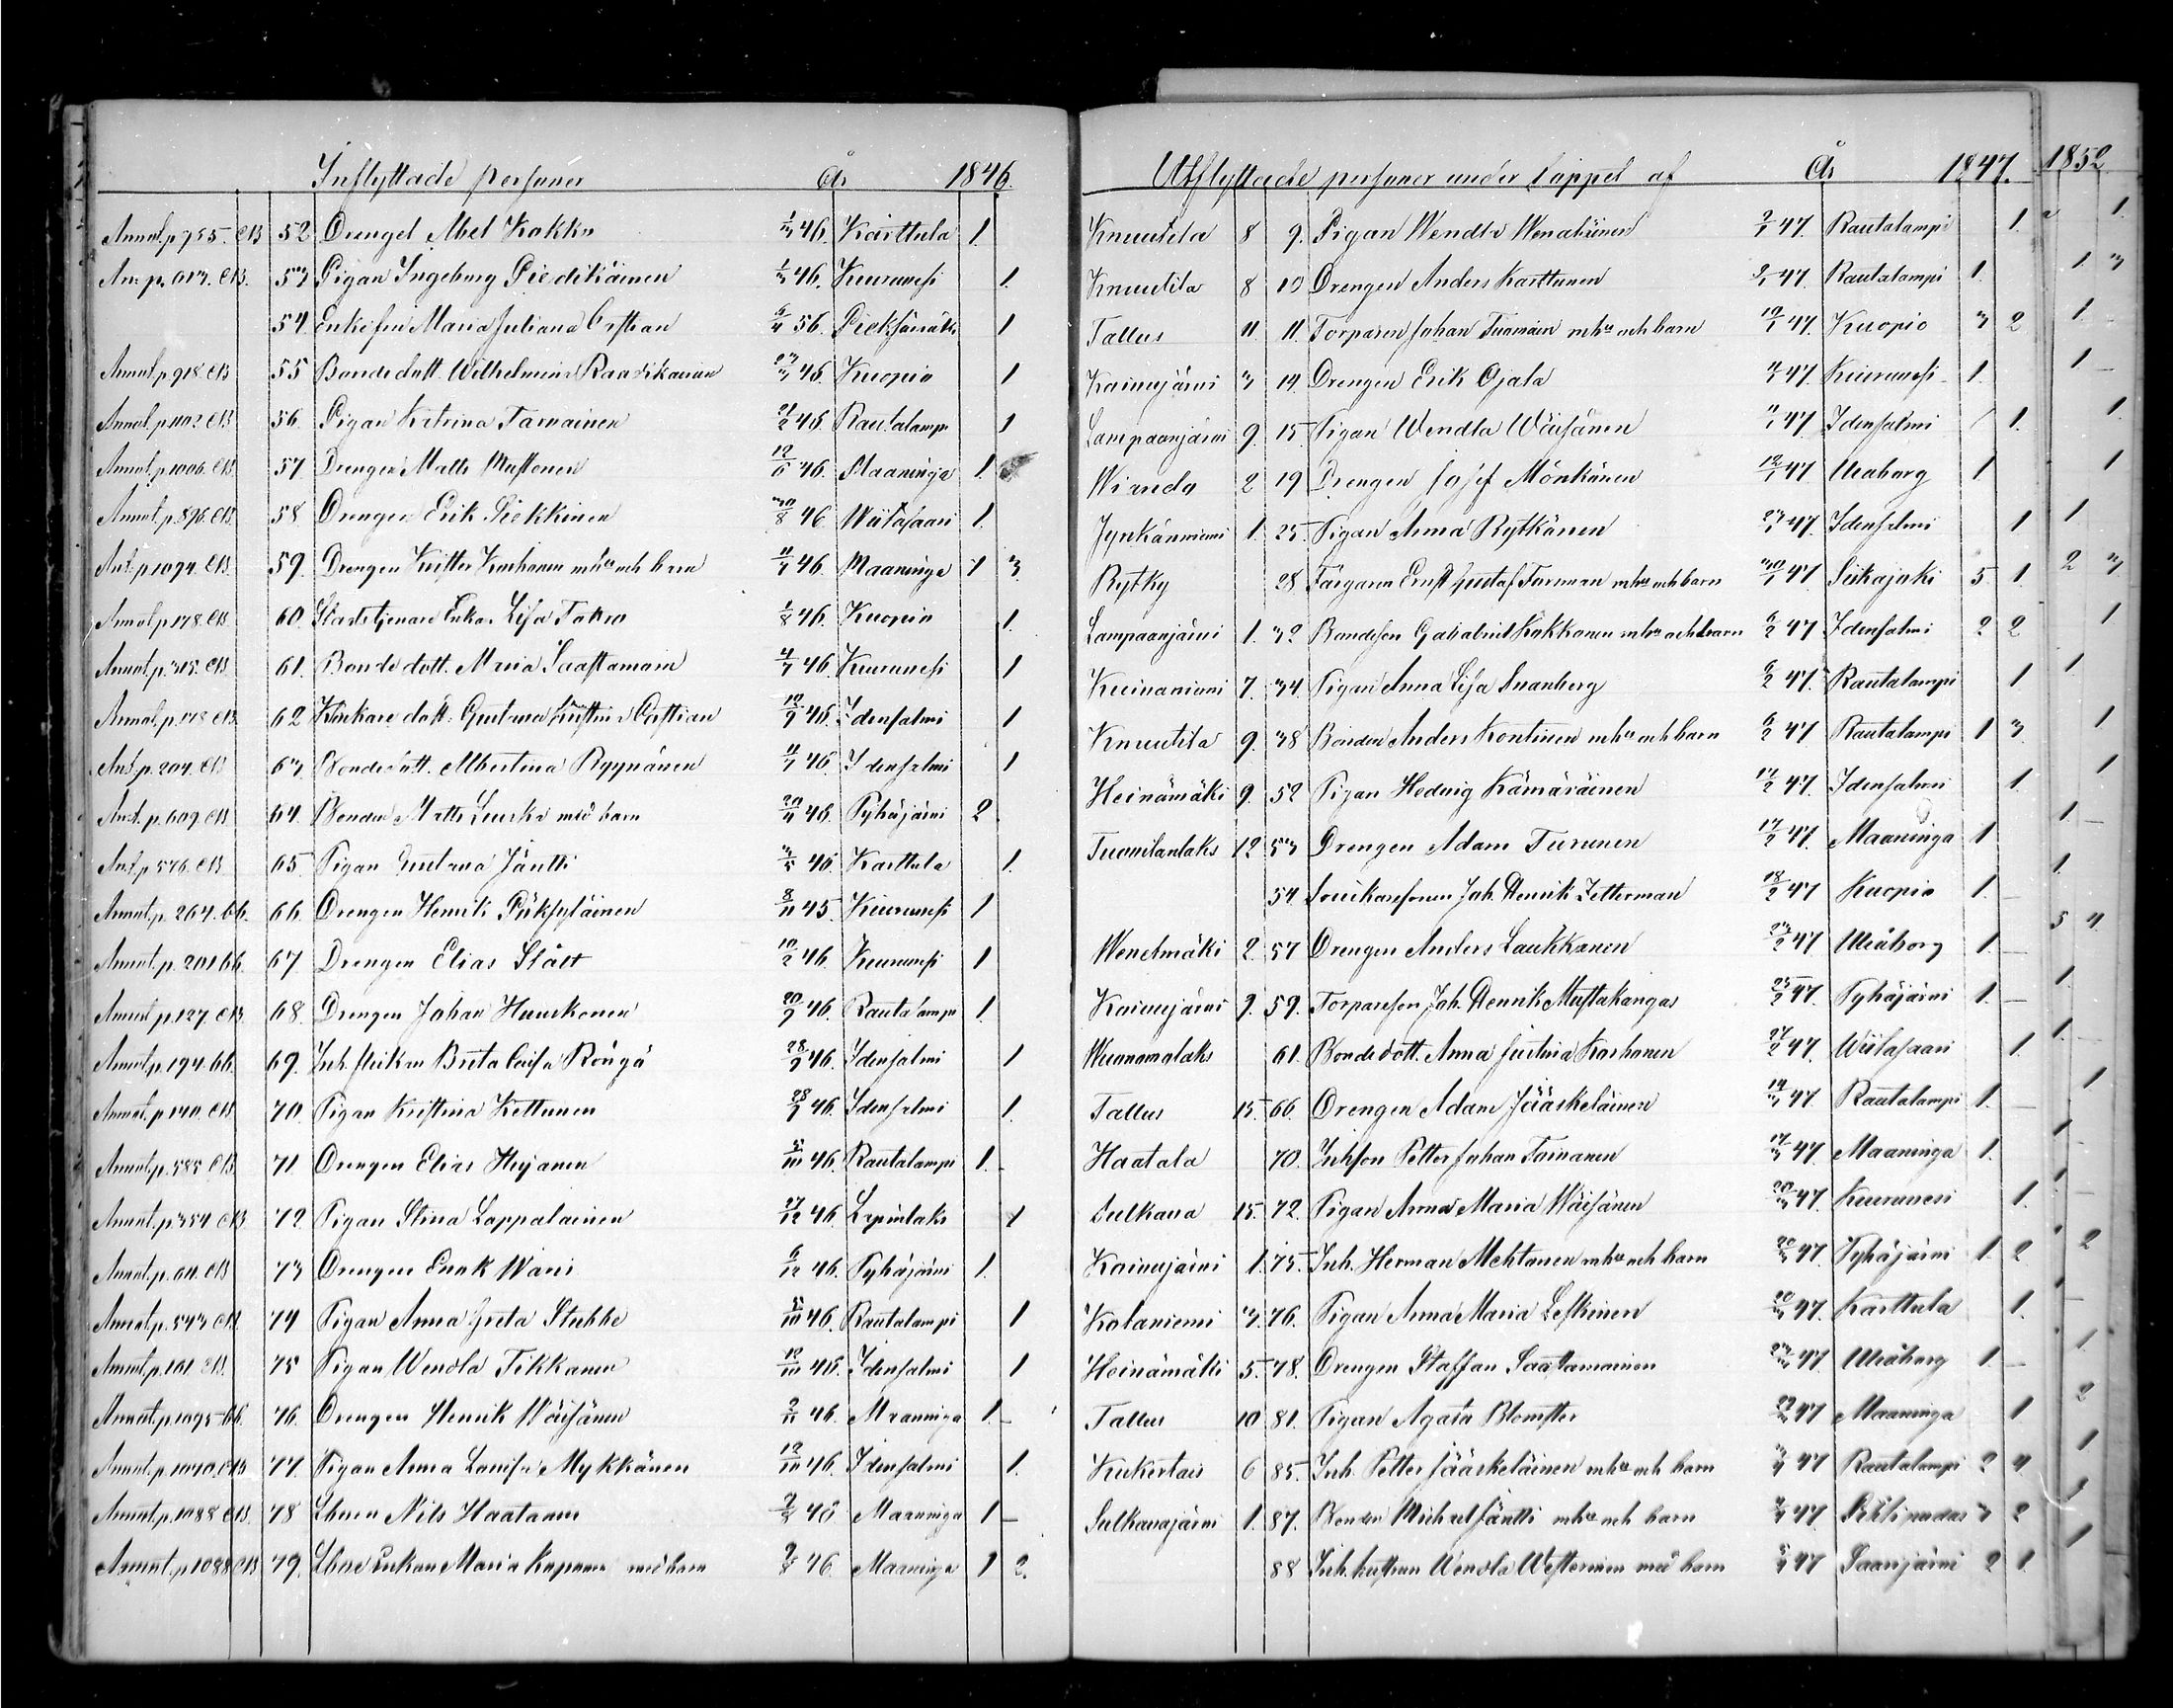 Inflyttade personer År 1846.
Annot. p 755. CB. 52 Drengel Abel Kokko 1/3 46. Karttula 1.
An: p. 613. CB. 53 Pigan Ingeborg Piedikäinen 1/3 46. Kiuruvesi 1.
54 Enkefru Maria Juliana 6/4 56. Pieksämäki 1
Annot. p 918. CB 55 Bondedott. Wilhelmina 23/3 46. Kuopio 1
Annot. p 1102. CB 56. Pigan Katrina Tarvainen 21/2 46 Rautalampi 1
Annot. p. 1006. CB 57. Drengen Matts Mustonen 12/6 46. Maaninga 1.
Annot. p. 896. CB 58 Drengen Erik Siekkinen 30/8 46 Wiitasaari 1.
Ant. p. 1094. CB. 59. Drengen Krister Korhonen m hu och barn 11/7 46 Maaninga 1 3.
Annot. p. 178. CB. 60. Enkan Lisa 1/8 46. Kuopio 1.
Annot. p. 315. CB 61. Bonde dott. Maria Saastamoin 4/7 46 Kiuruvesi 1
Annot. p. 178 CB. 62 Klockare dott. Gustava Kristina 10/9 46. Idensalmi 1
Ant. p. 204. CB 63 Bondedott. Albertina Ryynänen 11/7 46. Idensalmi 1
Ant. p. 609. CB 64. Bonden Matts med barn 20/4 46. Pyhäjärvi 2
Ant. p. 576. CB 65 Pigan Gustava Jäntti 3/5 46. Karttula 1.
Annot. p. 264. bb. 66. Drengen Henrik 8/11 45. Kiuruvesi 1
Annot. p. 201 bb. 67. Drengen Elias Slått 10/2 46. Kiuruvesi 1
Annot. p. 127. CB. 68. Drengen Johan Huuskonen 20/9 46. Rautalampi 1.
Annot. p. 194. bb. 69. Inh. Brita Caisa 28/9 46. Idensalmi 1
Annot. p. 140. CB 70. Pigan Kristina Kettunen 28/9 46. Idensalmi 1.
Annot. p. 585 CB 71. Drengen Elias 5/10 46. Rautalampi 1.
Annot. p. 354 CB 72 Pigan Stina Lappalainen 27/12 46. 1
Annot. p. 611. CB 73 Drengen 6/12 46. Pyhäjärvi 1.
Annot. p. 543 CB. 74 Pigan Anna Greta Stubbe 5/10 46. Rautalampi 1
Annot. p. 161. CB. 75 Pigan Wendla Tikkanen 12/10 46. Idensalmi 1
Annot. p. 1095 bb. 76. Drengen Henrik Wäisänen 2/11 46. Maaninga 1
Annot. p. 1040. CB 77. Pigan Anna Lovisa Mykkänen 12/10 46. Idensalmi 1.
Annot. p. 1088 CB. 78 Nils Haatanen 46 Maaninga 1
Annot. p. 1088 CB 79. Enkan Maria med barn 46 Maaninga 1 2.
Utflyttade personer under loppet af År 1847.
Knuutila 8 9. Pigan Wendla Wenäläinen 2/1 47. Rautalampi 1.
Knuutila 8 10 Drengen Anders Karttunen 2/1 47. Rautalampi 1.
Tallus 11. 11. Torparen Johan m hu och barn 10/1 47. Kuopio 3 2
Kaivujärvi 3 14 Drengen Erik Ojala 47. Kiuruvesi 1.
Lampaanjärvi 9. 15. Pigan Wendla Wäisänen 11/1 47 Idensalmi 1.
Wianda 2 19 Drengen Josef Mönkänen 12/1 47 Uleaborg 1
Jynkänniemi 1. 25. Pigan Anna Rytkönen 23/1 47. Idensalmi 1
Rytky 28 Färgaren Ernst Gustaf Forsman m hu och barn 30/1 47 Siikajoki 5 1.
Lampaanjärvi 1. 32 Bondeson Gabriel Kokkonen m hu och barn 6/2 47 Idensalmi 2 2
Kuivaniemi 7. 34. Pigan Anna Lisa Svanberg 6/2 47. Rautalampi 1
Knuutila 9. 38 Bonden Anders Kontinen m hu och barn 6/2 47 Rautalampi 1 3.
Heinämäki 9. 52 Pigan Hedvig Kämäräinen 17/2 47. Idensalmi 1.
Tuovilanlaks 12 53 Drengen Adam Turunen 17/2 47. Maaninga 1
54. Joh. Henrik Zetterman 18/2 47 Kuopio 1.
Wenetmäki 2 57 Drengen Anders Laukkanen 23/2 47 Uleåborg 1.
Kaivujärvi 9. 59. Torpareson Joh. Henrik Mustakangas 25/2 47. Pyhäjärvi 1.
Wuonamolaks 61. Bondedott. Anna Justina Korhonen 27/2 47. Wiitasaari 1.
Tallus 15. 66. Drengen Adam Jääskeläinen 14/3 47. Rautalampi 1.
Haatala 70. Inhson Petter Johan Toivanen 17/3 47. Maaninga 1.
Sulkava 15. 72. Pigan Anna Maria Wäisänen 20/3 47. Kiuruvesi 1.
Kaivujärvi 1. 75. Inh. Herman Mehtonen m hu och barn 20/3 47 Pyhäjärvi 1. 2
Kolaniemi 3. 76. Pigan Anna Maria Leskinen 20/3 47. Karttula 1.
Heinämäki 5. 78. Drengen Staffan Saastamoinen 23/3 47. Uleåborg 1.
Tallus 10 81. Pigan Agata Blomster 29/3 47 Maaninga 1
Kukertais 6 85. Inh. Petter Jääskeläinen m hu och barn 3/4 47 Rautalampi 2 4
Sulkavajärvi 1. 87. Bonden Michael Jäntti m hu och barn 47. Pihtipudas 3 2
88 Inh. hustrun Wendla Westerinen med barn 47 Saarijärvi 2 1.
1852